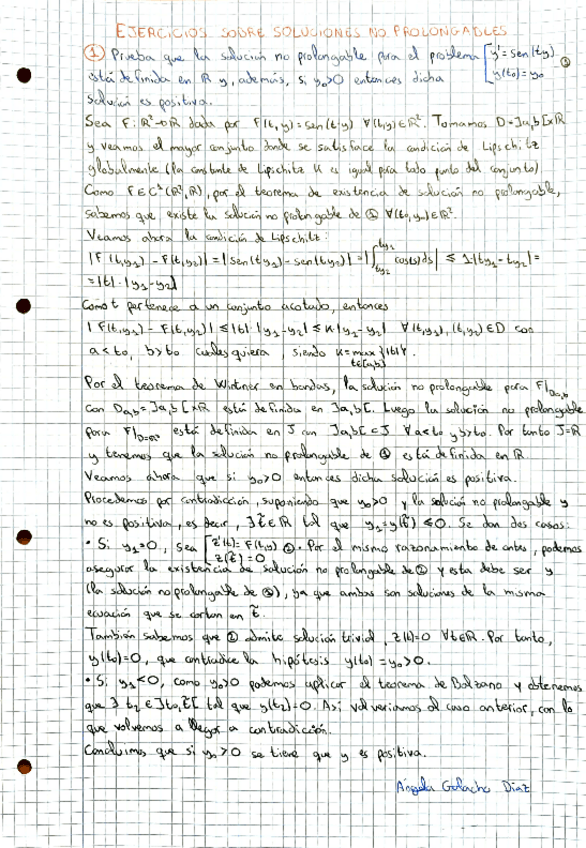 EJERCICIOS SOBRE SOLUCIONES NO PROLONGABLES
① Prueba que la solución no prolongable para el problema [y' = sen(ty) ①
está definida en ℝ y, además, si y₀>0 entonces dicha y(t₀)=y₀
solución es positiva.
Sea F: ℝ²→ℝ dada por F(t,y)=sen(t·y) ∀(t,y)∈ℝ². Tomamos D=]a,b[×ℝ
y veamos el mayor conjunto donde se satisface la condición de Lipschitz
globalmente (la constante de Lipschitz K es igual para todo punto del conjunto).
Como F∈C¹(ℝ²,ℝ), por el teorema de existencia de solución no prolongable,
sabemos que existe la solución no prolongable de ① ∀(t₀,y₀)∈ℝ².
Veamos ahora la condición de Lipschitz:
|F(t,y₁) - F(t,y₂)| = |sen(ty₁) - sen(ty₂)| = |∫_{ty₂}^{ty₁} cos(s)ds| ≤ 1·|ty₁-ty₂| =
= |t|·|y₁-y₂|
Como t pertenece a un conjunto acotado, entonces
|F(t,y₁) - F(t,y₂)| ≤ |t|·|y₁-y₂| ≤ K·|y₁-y₂| ∀(t,y₁),(t,y₂)∈D con
a<t₀, b>t₀ cualesquiera, siendo K = max{|t|}.
t∈[a,b]
Por el teorema de Wintner en bandas, la solución no prolongable para F|_{D_{a,b}}
con D_{a,b}=]a,b[×ℝ está definida en ]a,b[. Luego la solución no prolongable
para F|_{D=ℝ²} está definida en J con ]a,b[⊂J ∀a<t₀ y b>t₀. Por tanto J=ℝ
y tenemos que la solución no prolongable de ① está definida en ℝ
Veamos ahora que si y₀>0 entonces dicha solución es positiva.
Procedemos por contradicción, suponiendo que y₀>0 y la solución no prolongable y
no es positiva, es decir, ∃t̃∈ℝ tal que y₁=y(t̃) ≤0. Se dan dos casos:
• Si y₁=0, sea [z'(t)=F(t,y) ②. Por el mismo razonamiento de antes, podemos
z(t̃)=0
asegurar la existencia de solución no prolongable de ② y esta debe ser y
(la solución no prolongable de ①), ya que ambas son soluciones de la misma
ecuación que se cortan en t̃.
También sabemos que ② admite solución trivial, z(t)=0 ∀t∈ℝ. Por tanto,
y(t₀)=0, que contradice la hipótesis y(t₀)=y₀>0.
• Si y₁<0, como y₀>0 podemos aplicar el teorema de Bolzano y obtenemos
que ∃ t₂∈]t₀,t̃[ tal que y(t₂)=0. Así volveríamos al caso anterior, con lo
que volvemos a llegar a contradicción.
Concluimos que si y₀>0 se tiene que y es positiva.
Ángela Golacho Díaz